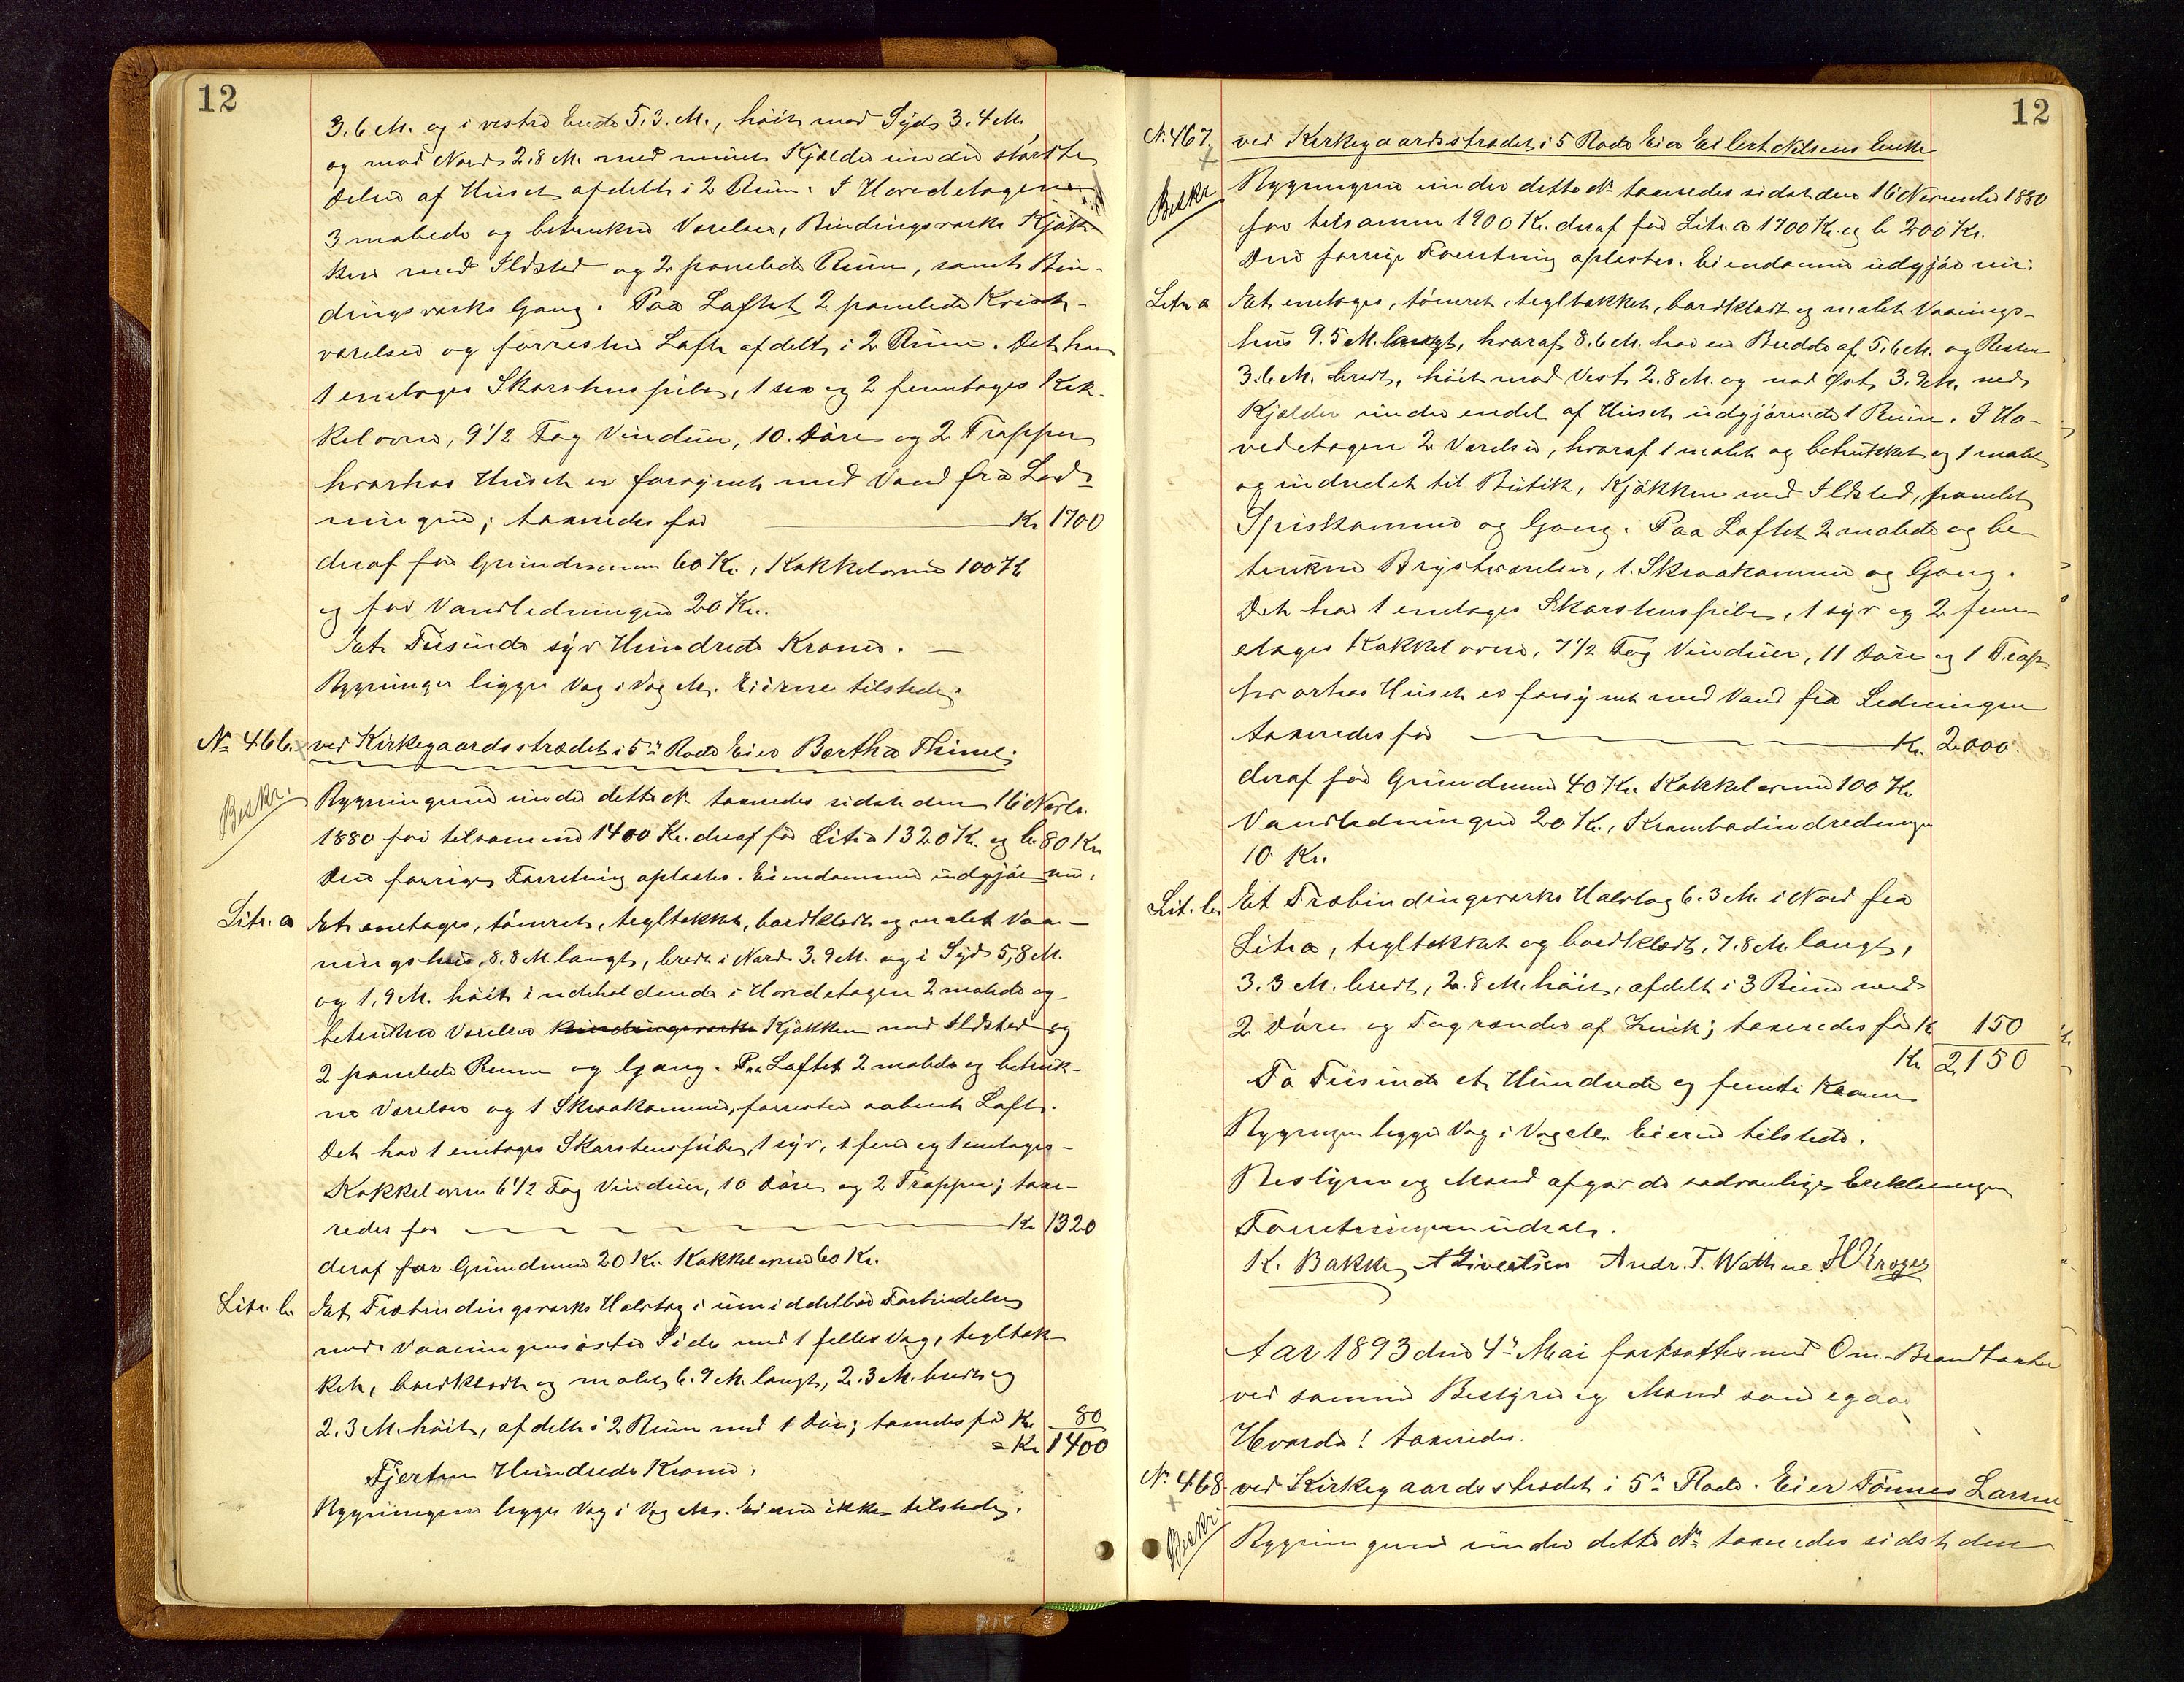 12
3.6 M. og i vestre Ende 5.3. M., höit mod Syd 3.4 M.
og mod Nord 2.8 M. med muret Kjælder under største
Delen af Huset afdelt i 2 Rum. I Hovedetagen
3 malede og betrukne Værelser, Bindingsværks Kjøk-
ken med Ildsted og 2 panelede Rum, samt Bin-
dingsværks Gang. Paa Loftet 2 panelede Kvist-
værelser og forresten Loft afdelt i 2 Rum. Det har
1 enetages Skorstenspibe, 1 sex og 2 femetages Kak-
kelovne, 9 1/2 Fag Vinduer, 10. Döre og 2 Trapper
hvorhos Huset er forsynet med Vand fra Led-
ningen; taxeredes for Kr 1700
deraf for Grundmuren 60 Kr., Kakkelovne 100 Kr
og for Vandledningen 20 Kr.
Et Tusinde syv Hundrede Kroner. —
Bygninger ligger Væg i Væg M. Eierne tilstede.
No 466. ved Kirkegaardsstrædet i 5te Rode Eier Bertha Thime;
Beskr. Bygningerne under dette No taxeredes sidst den 16 Novbr.
1880 for tilsammen 1400 Kr. deraf for Litr a 1320 Kr. og b. 80 Kr
Den forrige Forretning oplæstes. Eiendommen udgjør nu:
Litr. a Et enetages, tömret, tegltækket, bordklædt og malet Vaa-
ningshus, 8.8 M. langt, bredt i Nord 3.9 M. og i Syd 5,8 M.
og 1,9 M. höit indeholdende i Hovedetagen 2 malede og
betrukne Værelser Bindingsværks Kjøkken med Ildsted og
2 panelede Rum og Gang. Paa Loftet 2 malede og betruk-
ne Værelser og 1 Skraakammer, forresten aabent Loft.
Det har 1 enetages Skorstenspibe, 1 syv, 1 fem og 1 enetages
Kakkelovn 6 1/2 Fag Vinduer, 10 Döre og 2 Trapper; taxe-
redes for Kr 1320
deraf for Grundmur 20 Kr. Kakkelovne 60 Kr.
Litr. b. Et Træbindingsværks Halvtag i umiddelbar Forbindelse
med Vaaningens östre Side med 1 felles Væg, tegltæk
ket, bordklædt og malet, 6.9 M. langt, 2.3 M. bredt og
2.3 M. höit, afdelt i 2 Rum med 1 Dör; taxeredes for Kr 80
= Kr 1400
Fjorten Hundrede Kroner.
Bygningerne ligger Væg i Væg M. Eieren ikke tilstede.
12
N. 467. ved Kirkegaardsstrædet i 5 Rode Eier Eilert Nilsens Enke
Beskr Bygningerne under dette No taxeredes sidst den 16 November 1880
for tilsammen 1900 Kr. deraf for Litr. a 1700 Kr. og b 200 Kr.
Den forrige Forretning oplæstes. Eiendommen udgjør nu:
Litr. a Et enetages, tömret, tegltækket, bordklædt og malet Vaanings-
hus 9.5 M. langt, hvoraf 8.6 M. har en Bredde af 5.6 M. og Resten
3.6 M. bredt, höit mod Vest 2.8 M. og mod Øst 3.9 M. med
Kjælder under endel af Huset udgjörende 1 Rum. I Ho-
vedetagen 2 Værelser, hvoraf 1 malet og betrukket og 1 malet
og indredet til Butik, Kjøkken med Ildsted, panelet
Spiskammer og Gang. Paa Loftet 2 malede og be-
trukne Brystværelser, 1. Skraakammer og Gang.
Det har 1 enetages Skorstenspibe, 1 syv og 2 fem-
etages Kakkelovne, 7 1/2 Fag Vinduer, 11 Döre og 1 Trap-
hvorhos Huset er forsynet med Vand fra Ledningen
taxeredes for Kr. 2000.
deraf for Grundmur 40 Kr. Kakkelovne 100 Kr
Vandledningen 20 Kr., Krambodindredning
10 Kr.
Lit. b. Et Træbindingsværks Halvtag 6.3 M. i Nord fra
Litr a, tegltækket og bordklædt, 7.8 M. langt,
3.3 M. bredt, 2.8 M. höit, afdelt i 3 Rum med
2 Döre og Tagrender af Zink; taxeredes for K 150
Kr 2,150
To Tusinde et Hundrede og femti Kroner
Bygningen ligger Væg i Væg M. Eieren tilstede.
Bestyrer og Mænd afgav de sædvanlige Erklæringer
Forretningen udsat.
K. Bakke A Sivertsen Andr. T. Wathne H Kroger
Aar 1893 den 4de Mai fortsattes med Om-Brandtaxter
ved samme Bestyrer og Mænd som igaar
Hvorda! taxeredes.
N. 468. ved Kirkegaardsstrædet i 5te Rode. Eier Tönnes Larsen
Beskr Bygningerne under dette No taxeredes sidst den